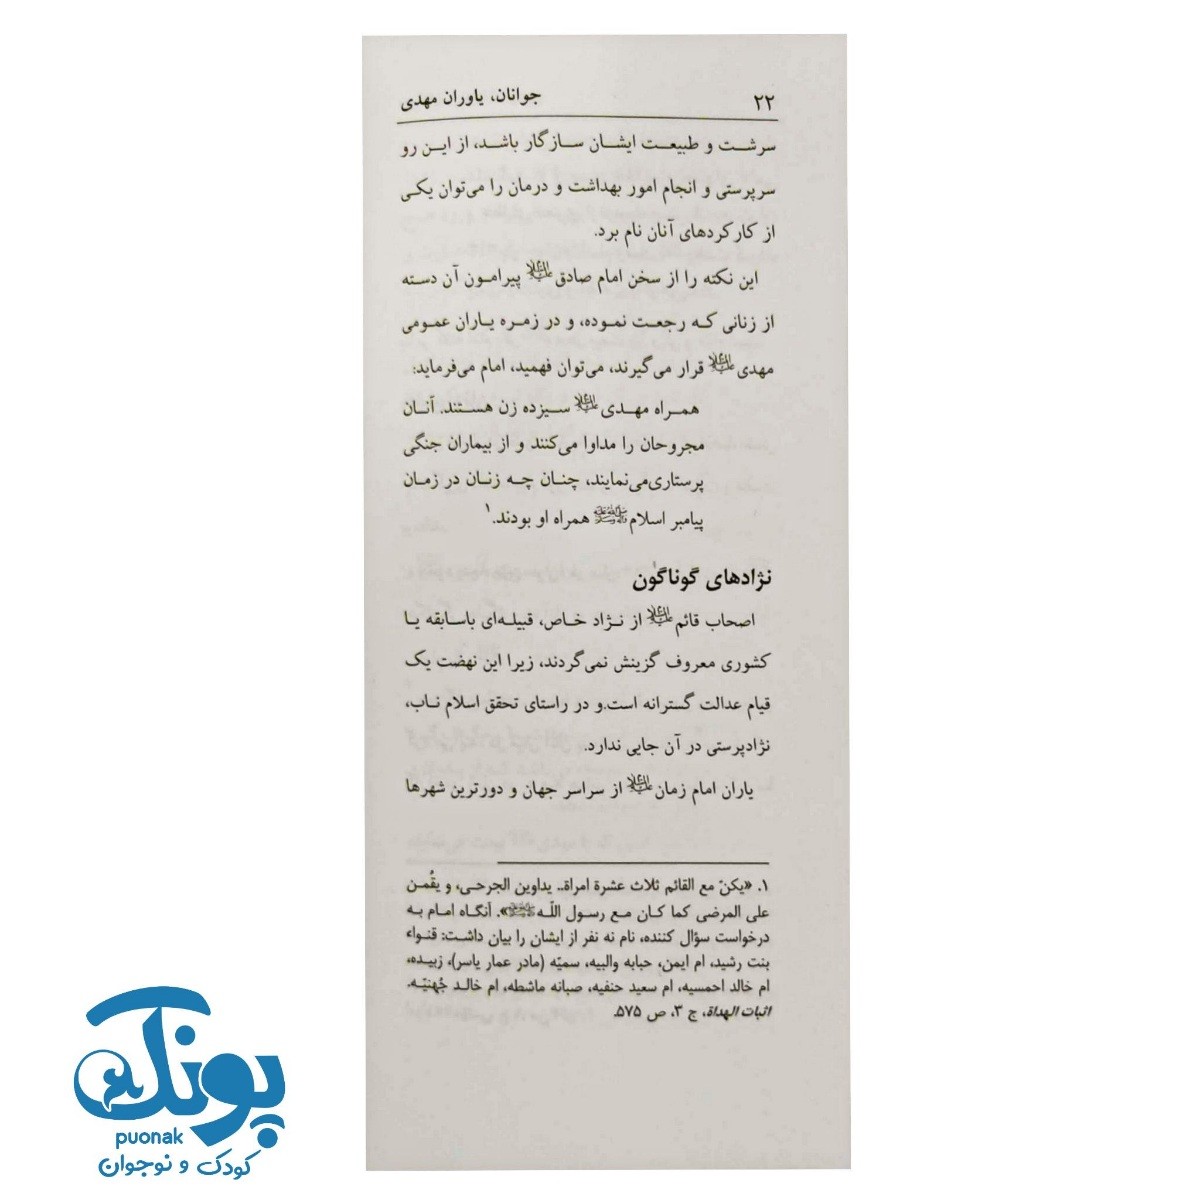 ۲۲ جوانان، یاوران مهدی
سرشت و طبیعت ایشان سازگار باشد، از این رو
سرپرستی و انجام امور بهداشت و درمان را می‌توان یکی
از کارکردهای آنان نام برد.
این نکته را از سخن امام صادق علیه‌السلام پیرامون آن دسته
از زنانی که رجعت نموده، و در زمره یاران عمومی
مهدی علیه‌السلام قرار می‌گیرند، می‌توان فهمید، امام می‌فرماید:
همراه مهدی علیه‌السلام سیزده زن هستند. آنان
مجروحان را مداوا می‌کنند و از بیماران جنگی
پرستاری‌می‌نمایند، چنان چه زنان در زمان
پیامبر اسلام ﷺ همراه او بودند.۱
نژادهای گوناگون
اصحاب قائم علیه‌السلام از نژاد خاص، قبیله‌ای باسابقه یا
کشوری معروف گزینش نمی‌گردند، زیرا این نهضت یک
قیام عدالت گسترانه است.و در راستای تحقق اسلام ناب،
نژادپرستی در آن جایی ندارد.
یاران امام زمان علیه‌السلام از سراسر جهان و دورترین شهرها
۱. «یکنّ مع القائم ثلاث عشرة امراة.. یداوین الجرحی، و یقُمن
علی المرضی کما کان مع رسول اللّه ﷺ». آنگاه امام به
درخواست سؤال کننده، نام نه نفر از ایشان را بیان داشت: قنواء
بنت رشید، ام ایمن، حبابه والبیه، سمیّه (مادر عمار یاسر)، زبیده،
ام خالد احمسیه، ام سعید حنفیه، صبانه ماشطه، ام خالد جُهنیّه.
اثبات الهداة، ج ۳، ص ۵۷۵.
پونک
puonak
کودک و نوجوان